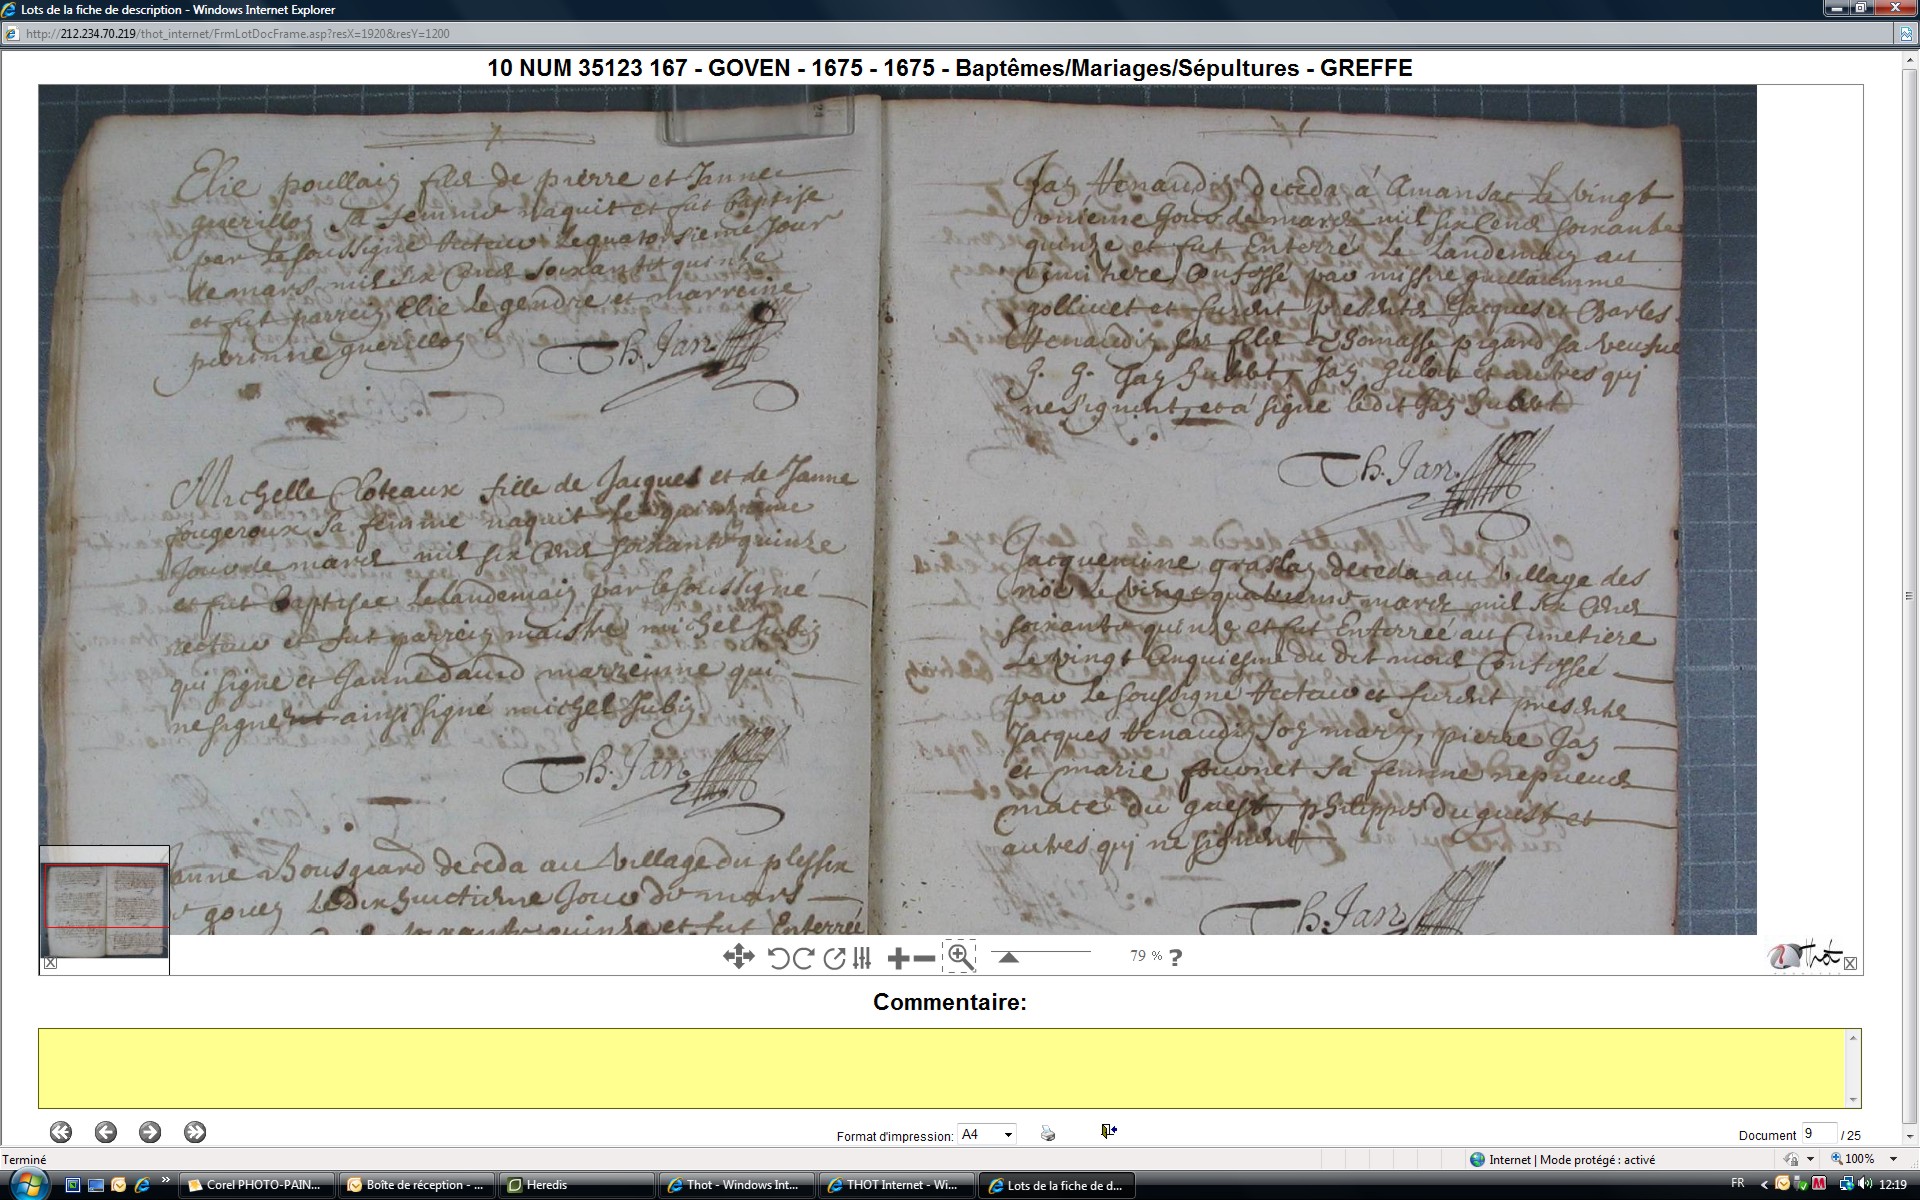 Lots de la fiche de description - Windows Internet Explorer
http://212.234.70.219/thot_internet/FrmLotDocFrame.asp?resX=1920&resY=1200
10 NUM 35123 167 - GOVEN - 1675 - 1675 - Baptêmes/Mariages/Sépultures - GREFFE
Elie poullain fils de pierre et Janne
guerillon sa femme naquit et fut baptise
par le soussigne Recteur le quatorsieme Jour
de mars mil six Cens soixante quinze
et fut parrein Elie Le gendre et marreine
perinne guerillon
Th. Jan
Michelle Cloteaux fille de Jacques et de Janne
fougeroux sa femme naquit le quinzieme
Jour de mars mil six Cens soixante quinze
et fut baptisee le landemain par le soussigné
recteur et fut parrein maistre michel Jubin
qui signe et Janne dauid marreinne qui
ne signent ainsi signé michel Jubin
Th. Jan
anne Bousgeard deceda au village du plessix
gouen le dix huictieme Jour de mars
soixante quinze et fut Enterrée
Jan Henaudin deceda à Amansac le vingt
unieme Jour de mars mil six Cens soixante
quinze et fut Enterré le Landemain au
Cimitiere Confessé par missire guillaumme
gollivet et furent presents Jacques et Charles
Henaudin ses fils Thomasse pigard sa veufue
Jan Hubert Jan et autres qui
ne signent et a signé ledit Jan Hubert
Th. Jan
Jacquemine graslan deceda au village des
noe le vingt quatrieme mars mil six Cens
soixante quinze et fut Enterreé au Cimetiere
Le vingt Cinquiesme du dit mois Confessée
par le soussigne Recteur et furent presents
Jacques Henaudin son mary, pierre Jan
et marie fouonet sa femme nepueus
macé du guest, philippes du guest et
autres qui ne signent
Th. Jan
79 % ?
Thot
Commentaire:
Format d'impression: A4
Document 9 / 25
Terminé
Internet | Mode protégé : activé
100%
Corel PHOTO-PAIN...
Boîte de réception - ...
Heredis
Thot - Windows Int...
THOT Internet - Wi...
Lots de la fiche de d...
FR
12:19